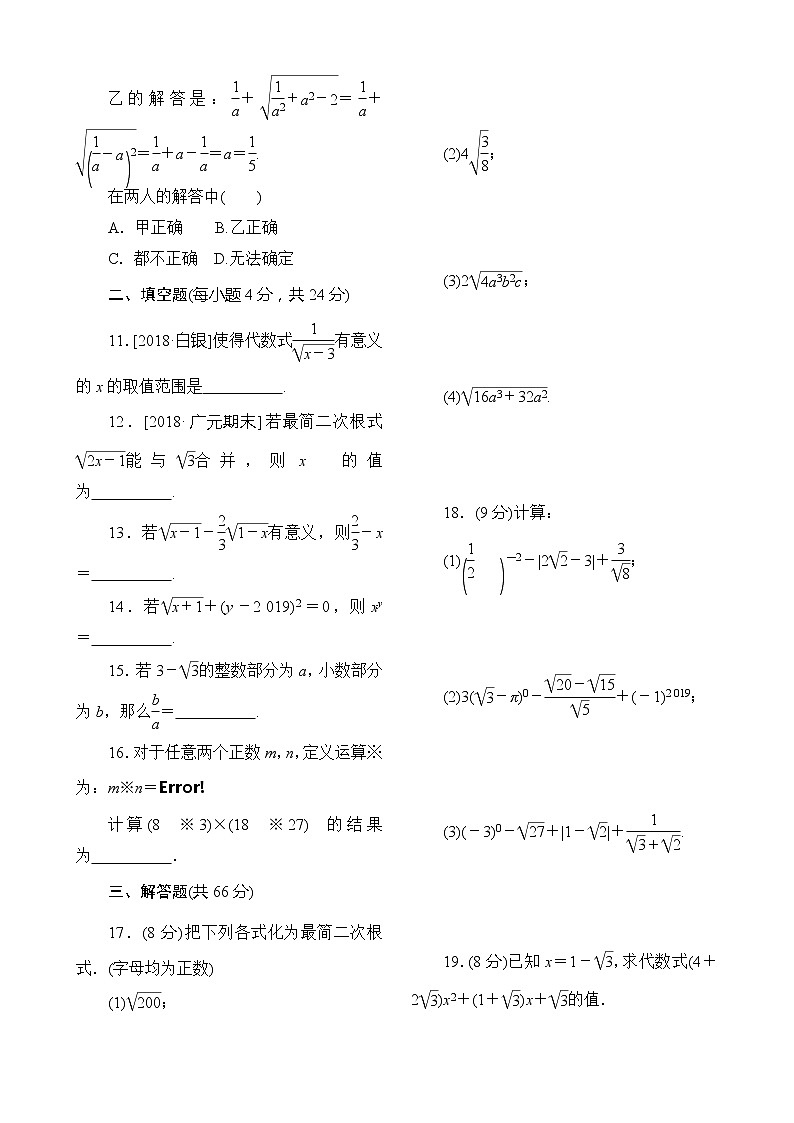 乙的解答是：1/a＋√(1/a²＋a²－2)＝1/a＋
√((1/a－a)²)＝1/a＋a－1/a＝a＝1/5.
在两人的解答中(　　)
A．甲正确　　B.乙正确
C．都不正确　D.无法确定
二、填空题(每小题4分，共24分)
11.[2018·白银]使得代数式1/√(x－3)有意义
的x的取值范围是__________.
12．[2018·广元期末]若最简二次根式
√(2x－1)能与√3合并，则x的值
为__________.
13．若√(x－1)－2/3√(1－x)有意义，则2/3－x
＝__________.
14．若√(x＋1)＋(y－2 019)²＝0，则xʸ
＝__________.
15．若3－√3的整数部分为a，小数部分
为b，那么b/a＝__________.
16.对于任意两个正数m，n，定义运算※
为：m※n＝Error!
计算(8※3)×(18※27)的结果
为__________．
三、解答题(共66分)
17．(8分)把下列各式化为最简二次根
式．(字母均为正数)
(1)√200；
(2)4√(3/8)；
(3)2√(4a³b²c)；
(4)√(16a³＋32a²).
18．(9分)计算：
(1)(1/2)⁻²－|2√2－3|＋3/√8；
(2)3(√3－π)⁰－(√20－√15)/√5＋(－1)²⁰¹⁹；
(3)(－3)⁰－√27＋|1－√2|＋1/(√3＋√2).
19.(8分)已知x＝1－√3，求代数式(4＋
2√3)x²＋(1＋√3)x＋√3的值．